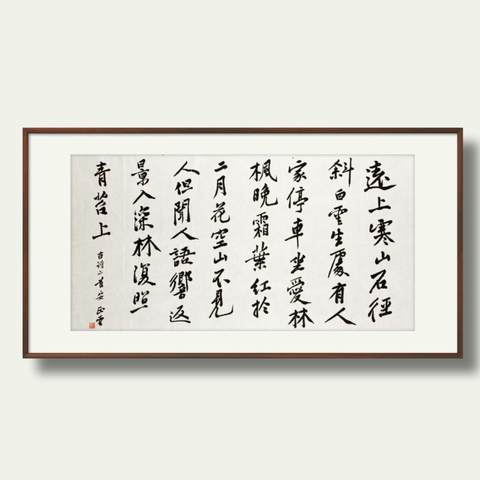 遠上寒山石徑
斜白雲生處有人
家停車坐愛林
楓晚霜葉紅於
二月花空山不見
人但聞人語響返
景入深林復照
青苔上
古詩二首